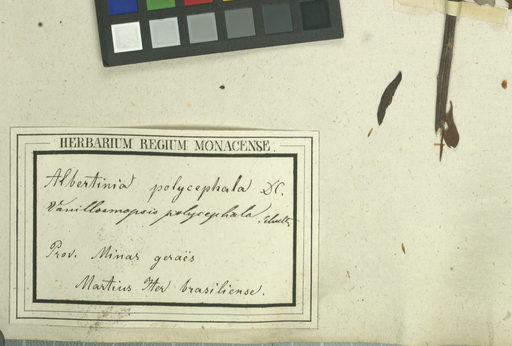 HERBARIUM REGIUM MONACENSE.
Albertinia polycephala DC.
Vanillosmopsis polycephala Schultz
Prov. Minas geraës
Martius Iter brasiliense.